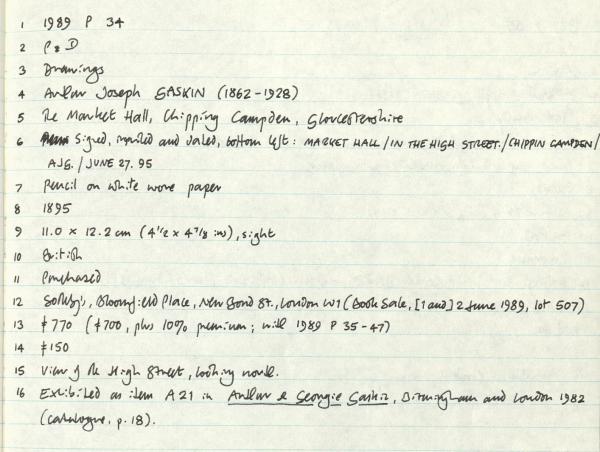 1 1989 P 34
2 P & D
3 Drawings
4 Arthur Joseph GASKIN (1862-1928)
5 The Market Hall, Chipping Campden, Gloucestershire
6 Signed, inscribed and dated, bottom left: MARKET HALL / IN THE HIGH STREET. / CHIPPIN CAMPDEN /
AJG. / JUNE 27. 95
7 Pencil on white wove paper
8 1895
9 11.0 x 12.2 cm (4 1/2 x 4 7/8 ins), sight
10 British
11 Purchased
12 Sotheby's, Bloomfield Place, New Bond St., London W1 (Book Sale, [1 and] 2 June 1989, lot 507)
13 £770 (£700, plus 10% premium; with 1989 P 35-47)
14 £150
15 View of the High Street, looking north.
16 Exhibited as item A21 in Arthur & Georgie Gaskin, Birmingham and London 1982
(catalogue, p. 18).